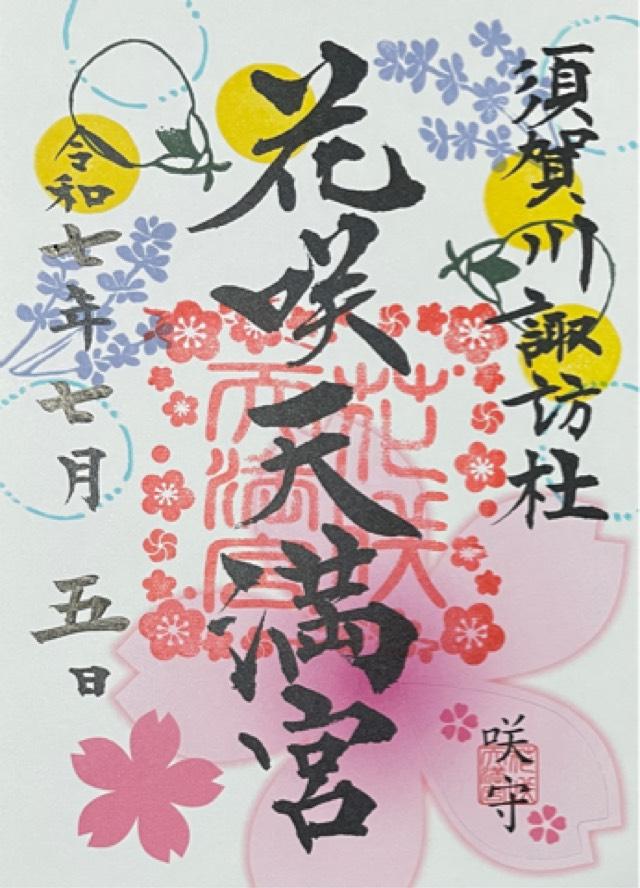 須賀川諏訪杜
花咲天満宮
花咲
天満宮
令和七年七月五日
咲守